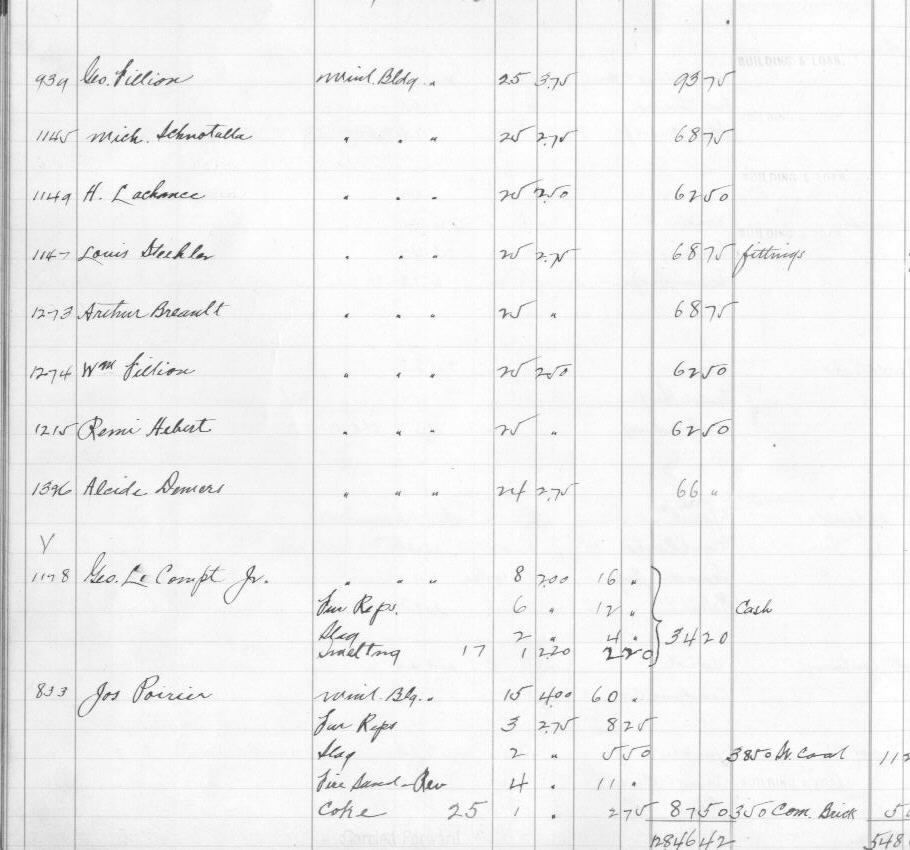 939 Geo. Fillion Maint. Bldg. " 25 3.75 93 75
1145 Mich. Schnotalla " " " 25 2.75 68 75
1149 H. Lachance " " " 25 2.50 62 50
1147 Louis Steckler " " " 25 2.75 68 75 fittings
1273 Arthur Breault " " " 25 " 68 75
1274 Wm Fillion " " " 25 2.50 62 50
1215 Remi Hebert " " " 25 " 62 50
1396 Alcide Demers " " " 24 2.75 66 "
V
1178 Geo. Le Compt Jr. " " " 8 2.00 16 "
Fur Reps. 6 " 12 " Cash
Slag 2 " 4 " 34 20
Smelting 17 1 2.20 2 20
833 Jos Poirier Maint. Blg. " 15 4.00 60 "
Fur Reps 3 2.75 8 25
Slag 2 " 5 50 3850 W. Coal 112
Fire Sand - Rev 4 " 11 "
Coke 25 1 " 2 75 87 50 350 Com. Brick 5
12846 42 548